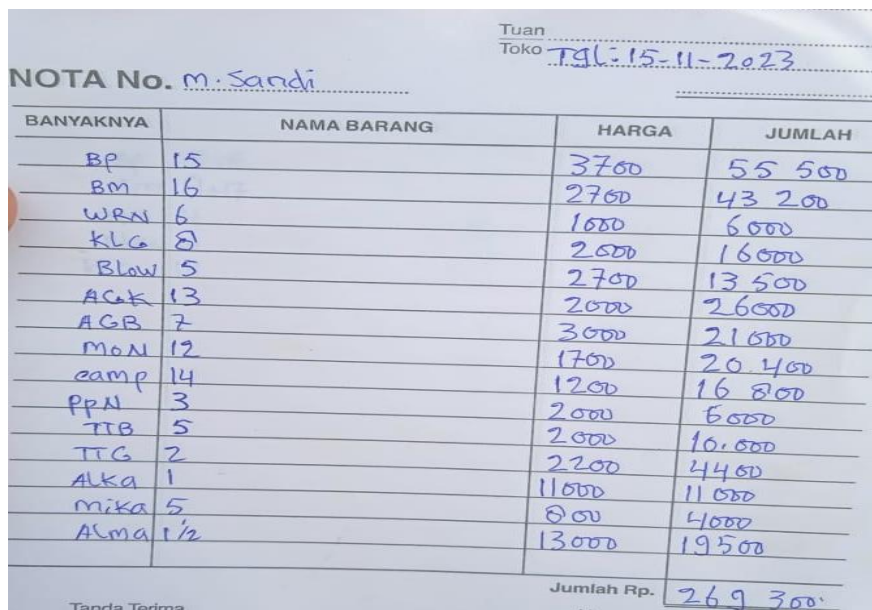 Tuan
Toko Tgl: 15-11-2023
NOTA No. M. Sandi
BANYAKNYA NAMA BARANG HARGA JUMLAH
BP 15 3700 55 500
BM 16 2700 43 200
WRN 6 1000 6000
KLG 8 2000 16000
Blow 5 2700 13 500
AGK 13 2000 26000
AGB 7 3000 21000
MON 12 1700 20.400
camp 14 1200 16 800
PPN 3 2000 6000
TTB 5 2000 10.000
TTG 2 2200 4400
ALKa 1 11000 11 000
Mika 5 800 4000
ALMa 1 1/2 13000 19500
Jumlah Rp. 269 300.
Tanda Terima